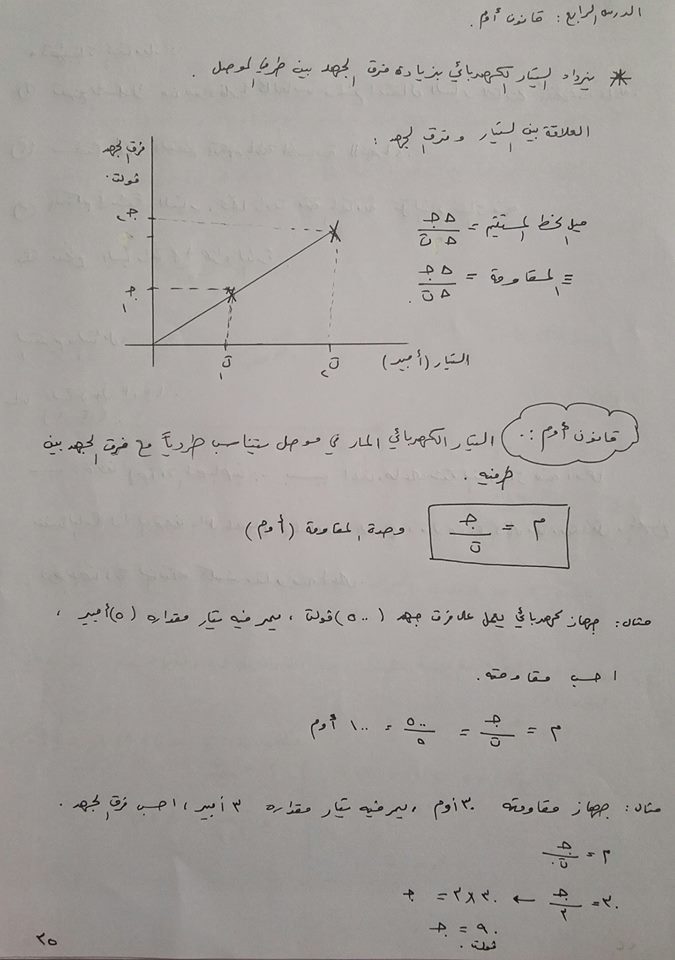 الدرس الرابع: قانون أوم.
* يزداد التيار الكهربائي بزيادة فرق الجهد بين طرفي الموصل.
العلاقة بين التيار وفرق الجهد:
فرق الجهد
فولت.
جـ٢
جـ١
ت١
ت٢
التيار (أمبير)
ميل الخط المستقيم = Δجـ / Δت
≡ المقاومة = Δجـ / Δت
قانون أوم: التيار الكهربائي المار في موصل يتناسب طردياً مع فرق الجهد بين
طرفيه.
م = جـ / ت
وحدة المقاومة (أوم)
مثال: جهاز كهربائي يعمل على فرق جهد (٥٠٠) فولت، يمر فيه تيار مقداره (٥) أمبير،
احسب مقاومته.
م = جـ / ت = ٥٠٠ / ٥ = ١٠٠ أوم
مثال: جهاز مقاومته ٣٠ أوم، يمر فيه تيار مقداره ٣ أمبير، احسب فرق الجهد.
م = جـ / ت
٣٠ = جـ / ٣ ← ٣٠ × ٣ = جـ
٩٠ = جـ
فولت.
٣٥